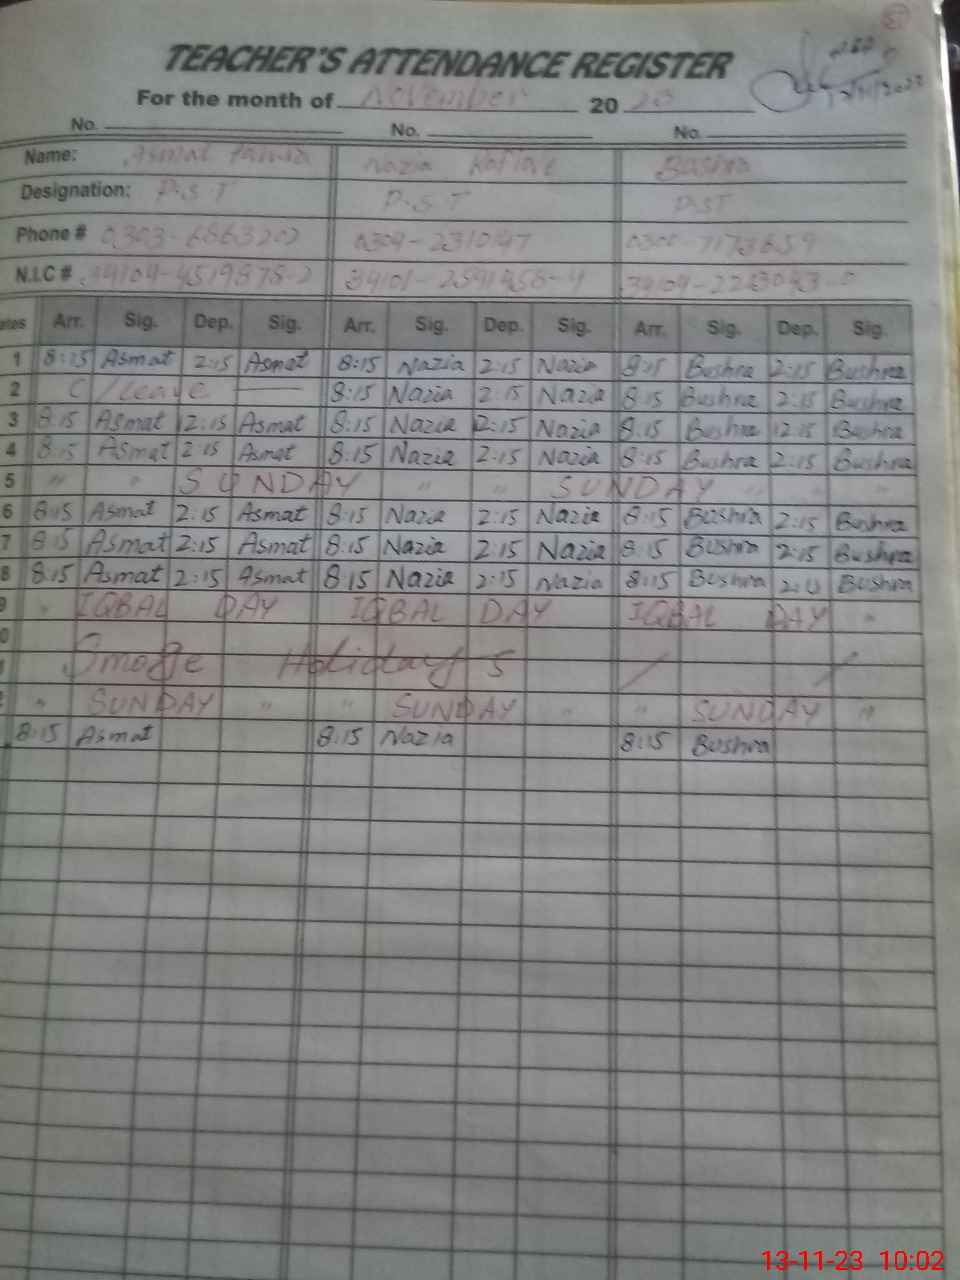 TEACHER'S ATTENDANCE REGISTER
For the month of November 20 23
No. No. No.
Name: Asmat Nazia Bushra
Designation: P.S.T P.S.T PST
Phone # 0303-6863202 0304-2310147 0300-7173659
N.I.C # 34104-4519878-2 34101-2591458-4 34104-2223093-0
Arr. Sig. Dep. Sig. Arr. Sig. Dep. Sig. Arr. Sig. Dep. Sig.
1 8:15 Asmat 2:15 Asmat 8:15 Nazia 2:15 Nazia 8:15 Bushra 2:15 Bushra
2 C/leave 8:15 Nazia 2:15 Nazia 8:15 Bushra 2:15 Bushra
3 8:15 Asmat 2:15 Asmat 8:15 Nazia 2:15 Nazia 8:15 Bushra 2:15 Bushra
4 8:15 Asmat 2:15 Asmat 8:15 Nazia 2:15 Nazia 8:15 Bushra 2:15 Bushra
5 " " SUNDAY " " SUNDAY " " "
6 8:15 Asmat 2:15 Asmat 8:15 Nazia 2:15 Nazia 8:15 Bushra 2:15 Bushra
7 8:15 Asmat 2:15 Asmat 8:15 Nazia 2:15 Nazia 8:15 Bushra 2:15 Bushra
8 8:15 Asmat 2:15 Asmat 8:15 Nazia 2:15 Nazia 8:15 Bushra 2:15 Bushra
9 " IQBAL DAY IQBAL DAY IQBAL DAY "
Smoge Holidays
" SUNDAY " " SUNDAY " " SUNDAY "
8:15 Asmat 8:15 Nazia 8:15 Bushra
13-11-23 10:02